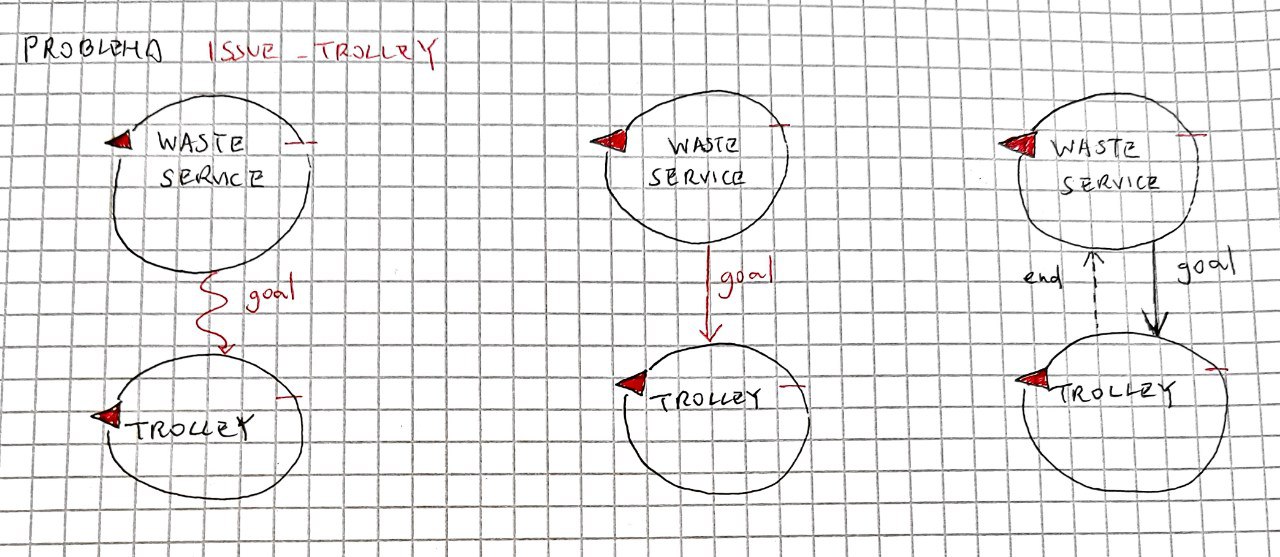 PROBLEMA ISSUE_TROLLEY
WASTE
SERVICE
goal
TROLLEY
WASTE
SERVICE
goal
TROLLEY
WASTE
SERVICE
end
goal
TROLLEY